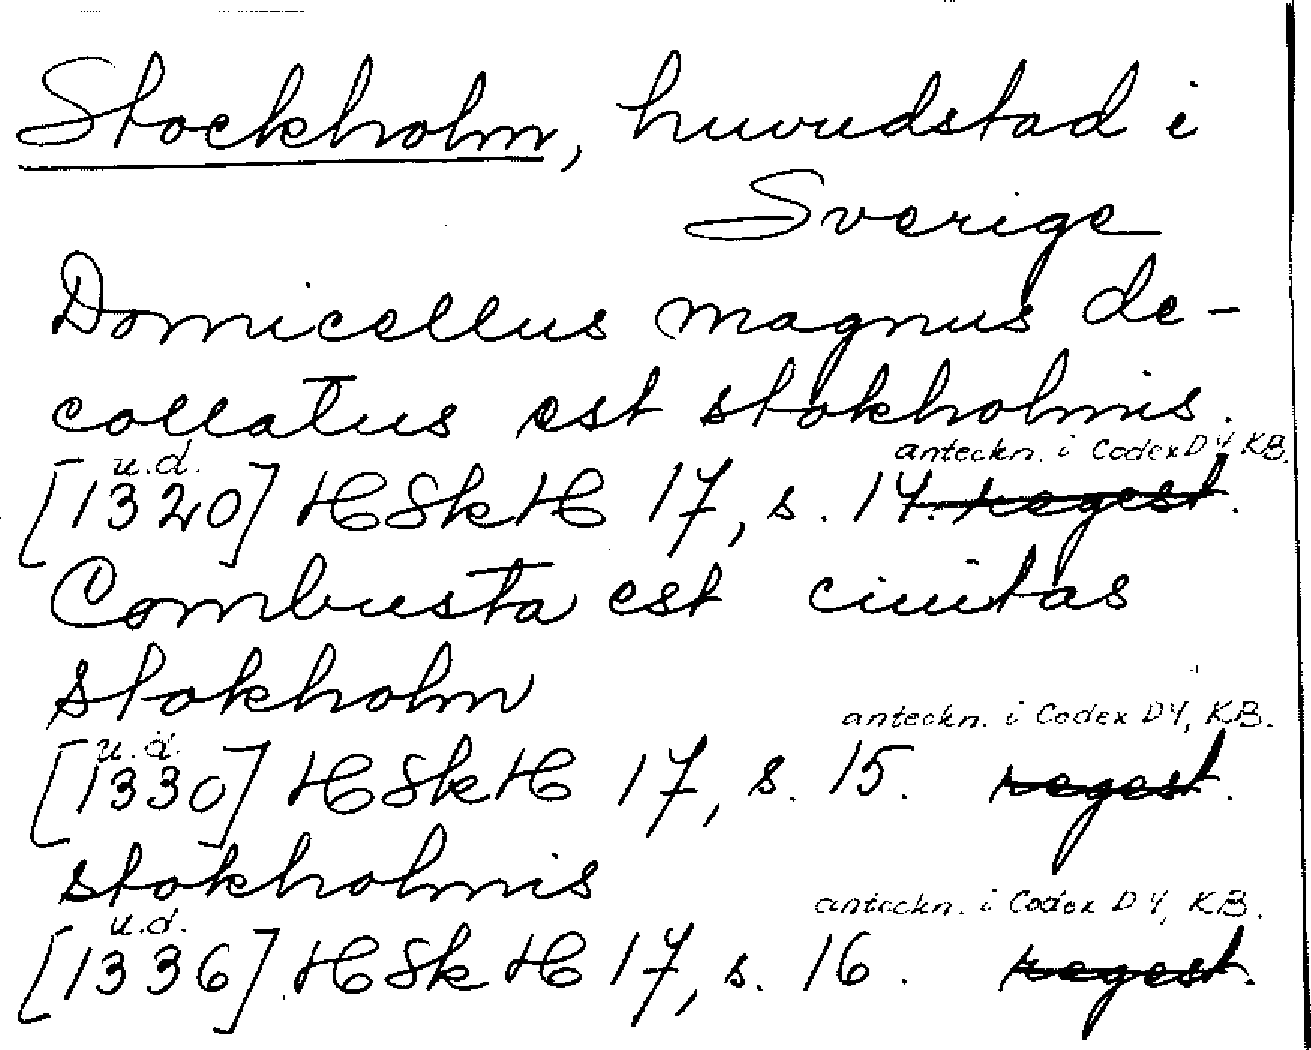 Stockholm, huvudstad i
Sverige
Domicellus magnus de-
collatus est stokholmis.
u.d. anteckn. i Codex D4, KB.
[1320] HSkH 17, s. 14. regest.
Combusta est ciuitas
stokholm
u.d. anteckn. i Codex D4, KB.
[1330] HSkH 17, s. 15. regest.
stokholmis
u.d. anteckn. i Codex D4, KB.
[1336] HSkH 17, s. 16. regest.